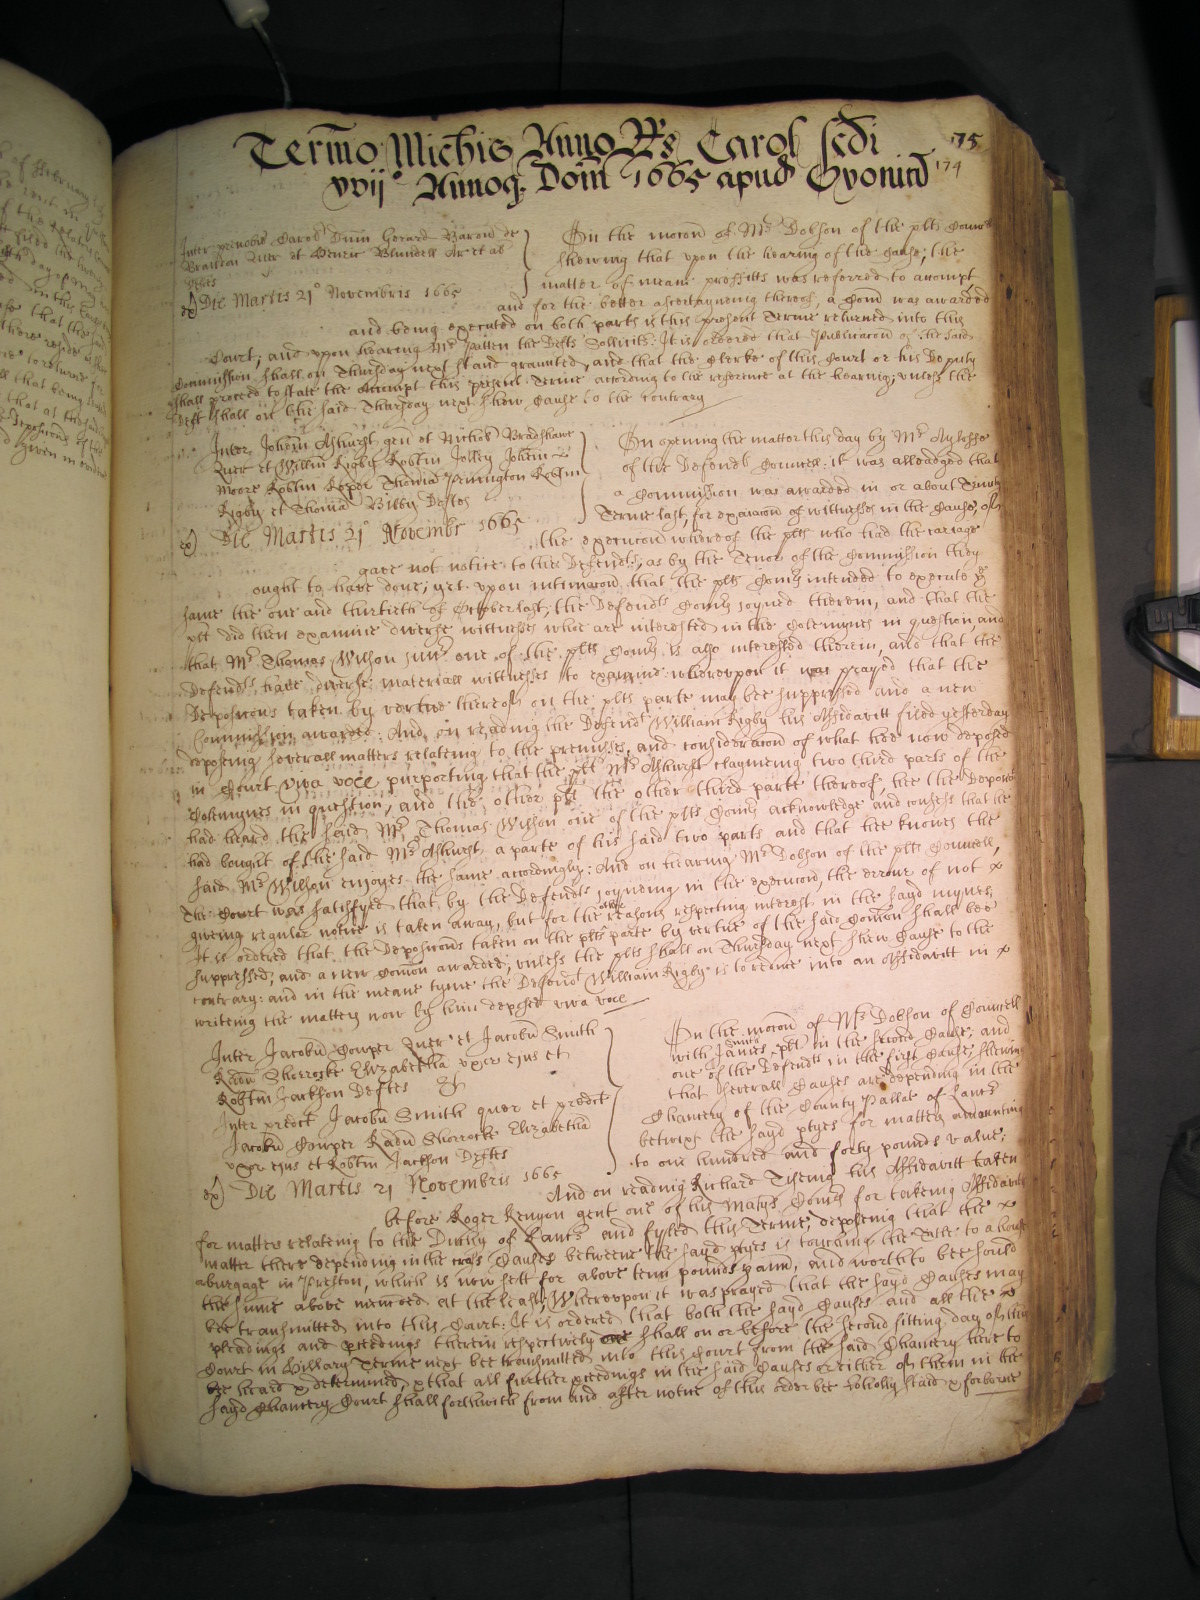 Termo Michis Anno RRs Carol scdi 175
xvij° Annoq Dom 1665 apud Oxonia 174
Inter prenobil Carol Dnm Gerard Baron de
Brandon Quer et Henric Blundell Ar et al
Deftes
ex) Die Martis 21° Novembris 1665
On the mocon of Mr Dobson of the plts Councell
shewing that upon the hearing of the Cause, the
matter of meane proffitts was referred to accompt
and for the better ascertayneing thereof, a Comn was awarded
and being executed on both parts is this present Terme returned into this
Court; and upon hearing Mr Patten the Defts Sollicitr. It is ordered that Publicacon of the said
Commission shall on Thursday next stand graunted, and that the Clerke of this Court or his Deputy
shall proceed to state the Accompt this present Terme according to the reference at the hearing; unless the
Deft shall on the said Thursday next shew Cause to the contrary
Inter Johem Ashurst gen et Nichol Bradshawe
Quer et Willm Rigby Robtm Jolley Johem
Moore Robtm Roper Thoma Pennington Robtm
Rigby et Thoma Bibby Deftes
ex) Die Martis 21° Novembr 1665
On opening the matter this day by Mr Ayloffe
of the Defendts Councell: it was alleadged that
a Commission was awarded in or about Trinity
Terme last, for exaiacon of wittnesses in the Cause, of
the execucon whereof the plts who had the carriage
gave not notice to the Defendts, as by the Tenor of the Commission they
ought to have done; yet upon intimacon that the plts Comrs intended to execute ye
same the one and thirtieth of October last, the Defendts Comrs joyned therein, and that the
plt did then examine diverse wittnesses who are interested in the Colemynes in question, and
that Mr Thomas Wilson junr one of the plts Comrs is also interessed therein, and that the
Defendts have diverse materiall wittnesses to examine whereupon it was prayed that the
Deposicons taken by vertue thereof on the plts parte may bee suppressed and a new
Commission awarded: And on reading the Defendt William Rigby his Affidavitt filed yesterday
deposeing severall matters relateing to the premisses, and consideracon of what hee now deposed
in Court viva voce, purporting that the plt Mr Ashurst claymeing two third parts of the
Colemynes in question, and the other plt the other third parte thereof, hee the Deponent
had heard the said Mr Thomas Wilson one of the plts Comrs acknowledge and confess that he
had bought of the said Mr Ashurst a parte of his said two parts and that hee knowes the
said Mr Wilson enjoyes the same accordingly: And on hearing Mr Dobson of the plts Councell,
The Court was satisfyed that by the Defendts joyneing in the execucon, the errour of not x
giveing regular notice is taken away, but for the other reasons respecting interest in the sayd mynes
It is ordered that the Deposicons taken on the plts parte by vertue of the said Comon shall bee
suppressed, and a new Comon awarded; unless the plts shall on Thursday next shew Cause to the
contrary: and in the meane tyme the Defendt William Rigby is to reduce into an Affidavitt in x
writeing the matters now by him deposed viva voce
Inter Jacobu Cowper Quer et Jacobu Smith
Radm Shorrocke Elizabetha uxor ejus et
Robtm Jackson Deftes Et
Inter predict Jacobu Smith quer et predict
Jacobu Cowper Radu Shorrocke Elizabetha
uxor ejus et Robtm Jackson Deftes
ex) Die Martis 21 Novembris 1665
On the mocon of Mr Dobson of Councell
with James Smith plt in the second Cause, and
one of the Defendts in the first Cause, shewing
that severall Causes are depending in the
Chancery of the County Pallat of Lancr
betwixt the sayd ptyes for matters amounting
to one hundred and forty pounds value;
And on reading Richard Tiseing his Affidavitt taken
before Roger Kenyon gent one of his Matys Comrs for takeing Affidavts
for matters relateing to the Duchy of Lancr and fyled this Terme, deposeing that the x
matter there depending in the cross Causes betweene the sayd ptyes is touching the Title to a house
aburgage in Preston, which is now sett for above tenn pounds p ann, and worth to bee sould
the sume above mencoed at the least; Whereupon it was prayed that the sayd Causes may
bee transmitted into this Court: It is ordered that both the sayd Causes and all the x
pleadings and pceedings therein respectively shall on or before the second sitting day of this
Court in Hillary Terme next bee transmitted into this Court from the said Chancery here to
bee heard & determined, & that all further pceedings in the said Causes or either of them in the
sayd Chancery Court shall forthwith from and after notice of this order bee wholly staid & forborne